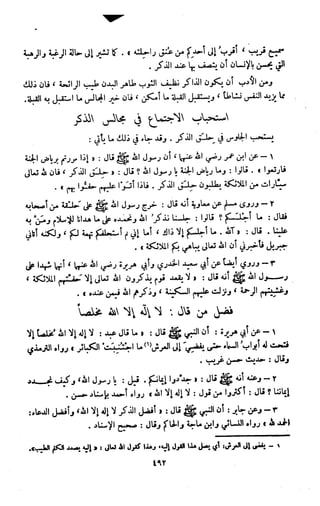 سميع قريب، أقرب إلى أحدكم من عنق راحلته». كما تشير إلى حالة الرغبة والرهبة
التي يحسن بالإنسان أن يتصف بها عند الذكر.
ومن الأدب أن يكون الذاكر نظيف الثوب طاهر البدن طيب الرائحة، فان ذلك
مما يزيد النفس نشاطا، ويستقبل القبلة ما أمكن، فان خير المجالس ما استقبل به القبلة.
استحباب الاجتماع في مجالس الذكر
يستحب الجلوس في حلق الذكر. وقد جاء في ذلك ما يأتي:
١ - عن ابن عمر رضي الله عنهما، أن رسول الله ﷺ قال: «إذا مررتم برياض الجنة
فارتعوا». قالوا: وما رياض الجنة يا رسول الله؟ قال ﷺ: «حلق الذكر، فان لله تعالى
سيارات من الملائكة يطلبون حلق الذكر. فاذا أتوا عليهم حفوا بهم».
٢ - وروى مسلم عن معاوية أنه قال: خرج رسول الله ﷺ على حلقة من أصحابه
فقال: «ما أجلسكم؟ قالوا: جلسنا نذكر الله ونحمده على ما هدانا للاسلام ومن به
علينا. قال: «آلله. ما أجلسكم إلا ذاك، أما إني لم أستحلفكم تهمة لكم، ولكنه أتاني
جبريل فأخبرني أن الله تعالى يباهي بكم الملائكة».
٣ - وروى أيضا عن أبي سعيد الخدري وأبي هريرة رضي الله عنهما، أنهما شهدا على
رسول الله ﷺ أنه قال: «لا يقعد قوم يذكرون الله تعالى إلا حفتهم الملائكة،
وغشيتهم الرحمة، ونزلت عليهم السكينة، وذكرهم الله فيمن عنده».
فضل من قال: لا إله إلا الله مخلصا
١ - عن أبي هريرة: أن النبي ﷺ قال: «ما قال عبد: لا إله إلا الله مخلصا إلا
فتحت له أبواب السماء حتى يفضي إلى العرش(١) ما اجتنبت الكبائر» رواه الترمذي
وقال: حديث حسن غريب.
٢ - وعنه أنه ﷺ قال: «جددوا إيمانكم. قيل: يا رسول الله، وكيف نجدد
إيماننا؟ قال: أكثروا من قول: لا إله إلا الله» رواه أحمد بإسناد حسن.
٣ - وعن جابر: أن النبي ﷺ قال: «أفضل الذكر لا إله إلا الله، وأفضل الدعاء:
الحمد لله» رواه النسائي وابن ماجة والحاكم وقال: صحيح الإسناد.
١ - يفضى إلى العرش: أي يصل هذا القول إليه، وهذا كقول الله تعالى: «إليه يصعد الكلم الطيب».
٤٩٢